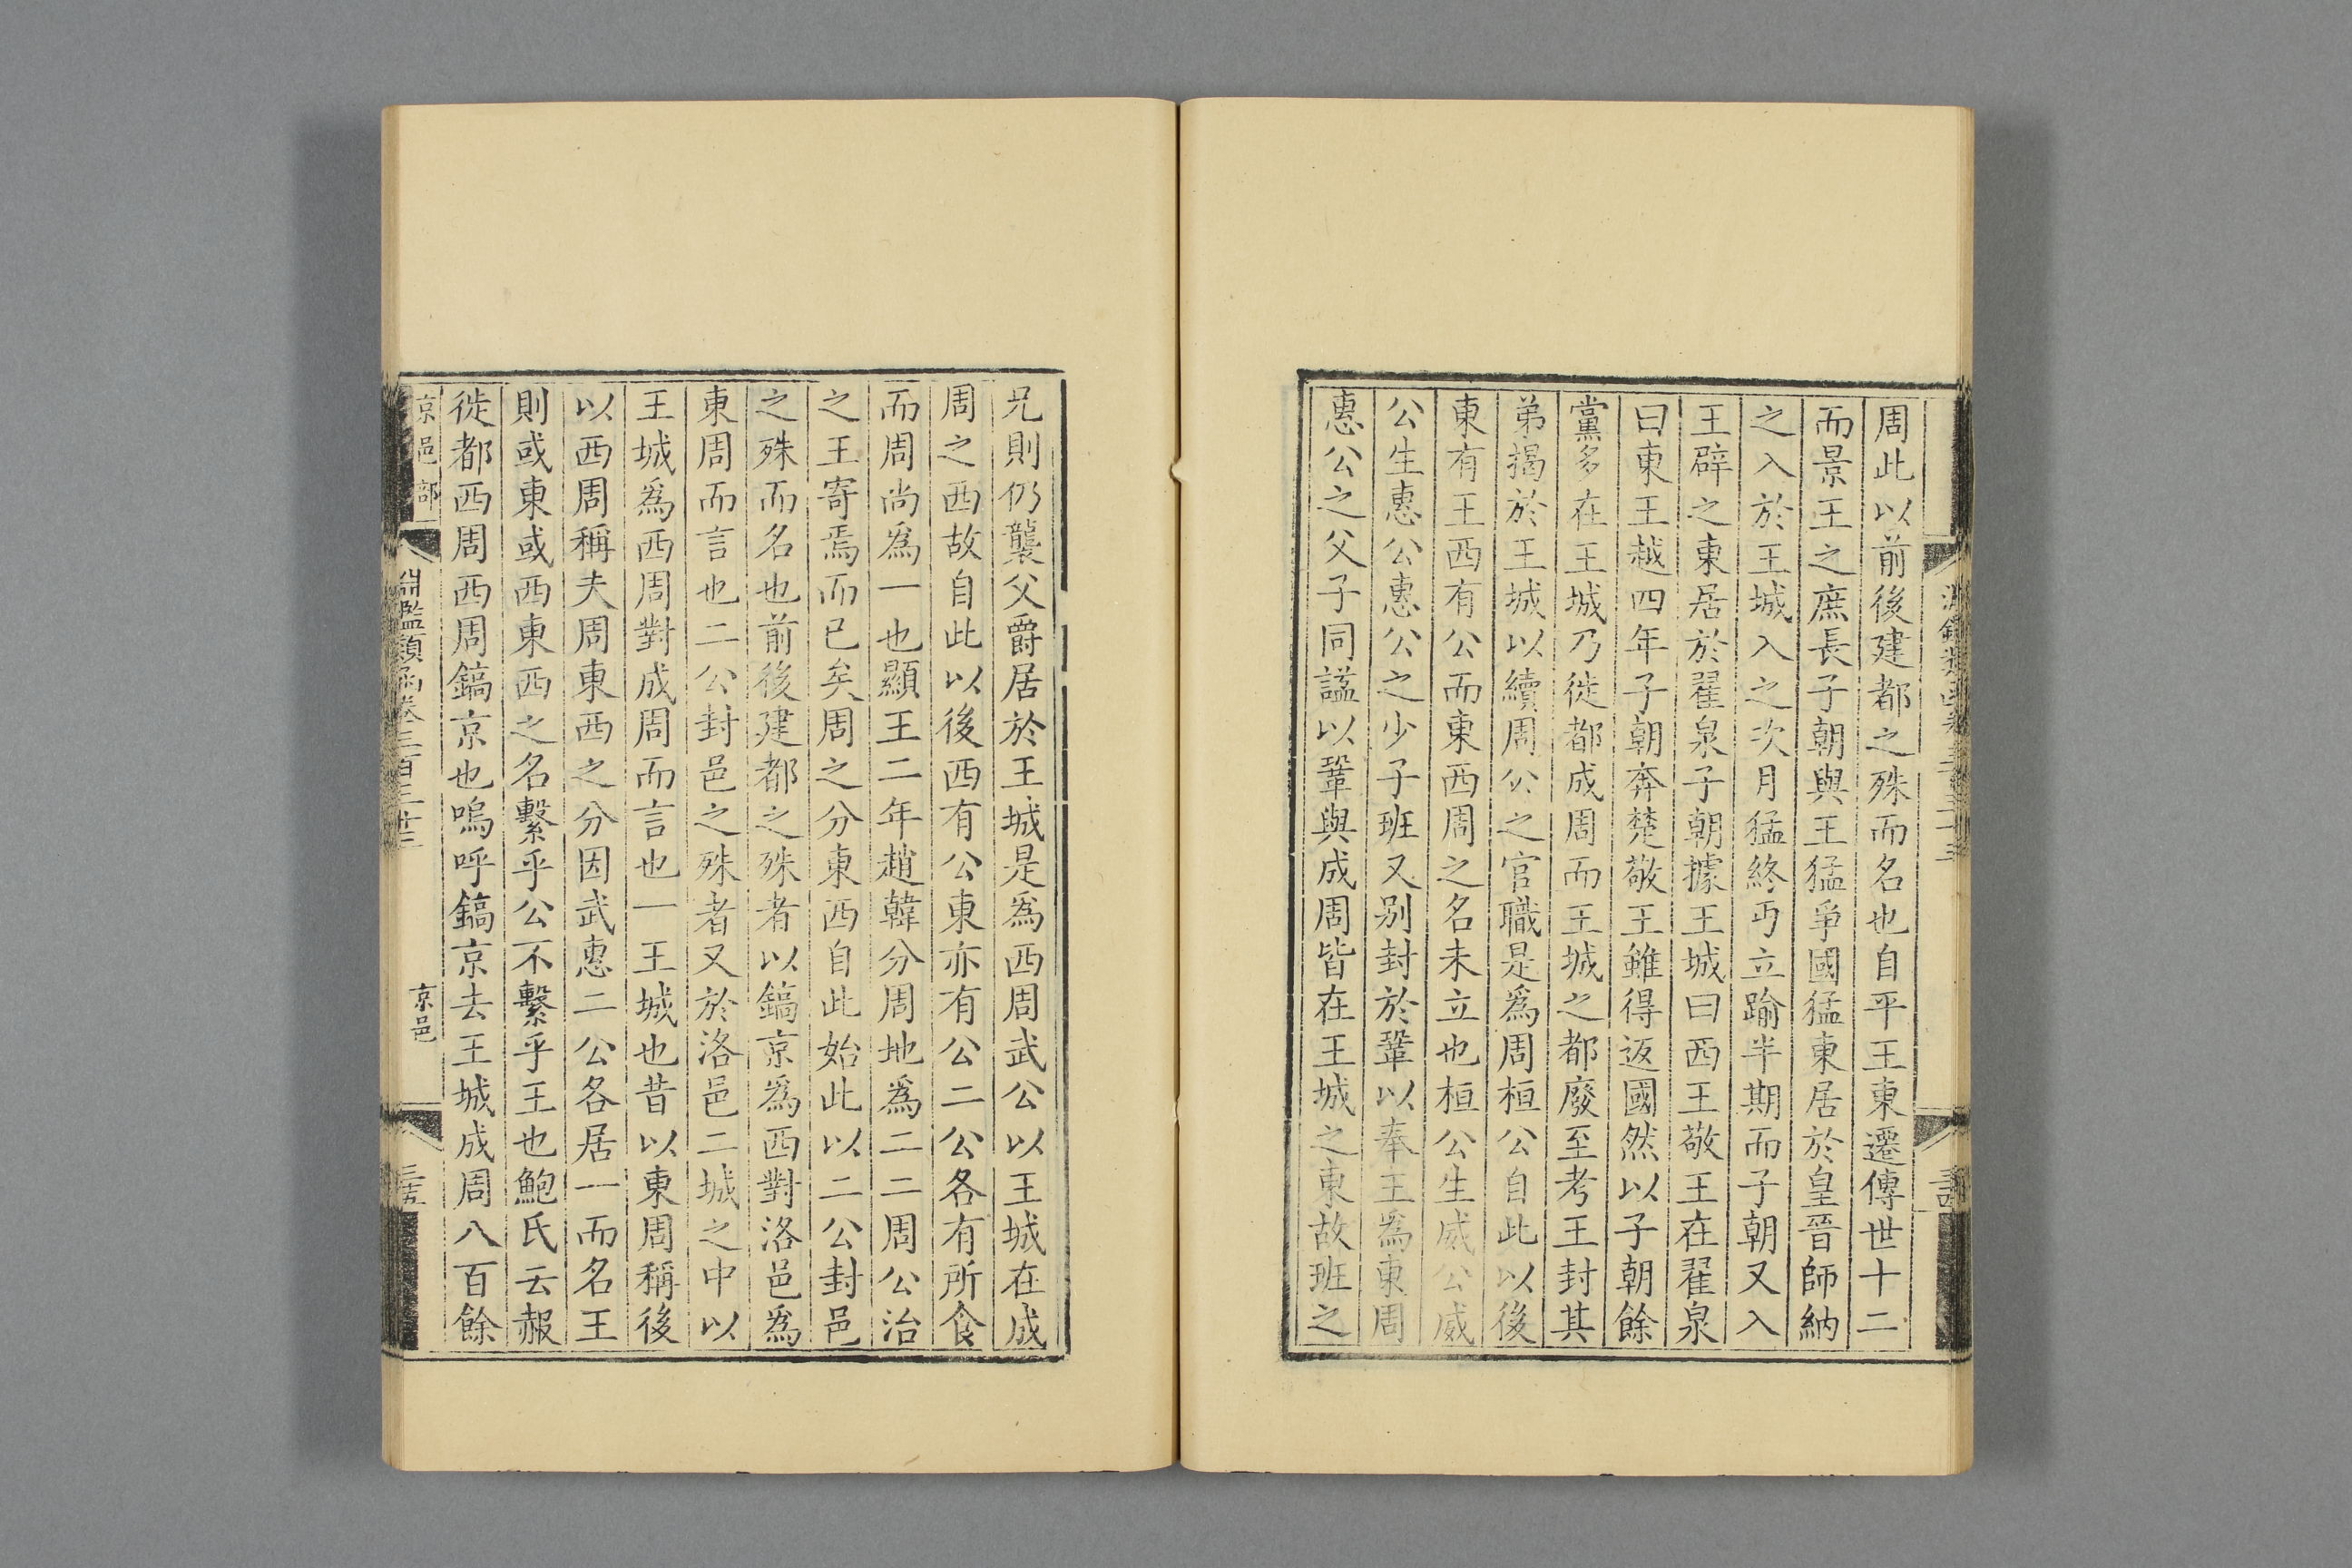 周此以前後建都之殊而名也自平王東遷傳世十二
而景王之庶長子朝與王猛爭國猛東居於皇晉師納
之入於王城入之次月猛終丏立踰半期而子朝又入
王辟之東居於翟泉子朝據王城曰西王敬王在翟泉
曰東王越四年子朝奔楚敬王雖得返國然以子朝餘
黨多在王城乃徙都成周而王城之都廢至考王封其
弟揭於王城以續周公之官職是爲周桓公自此以後
東有王西有公而東西周之名未立也桓公生威公威
公生惠公惠公之少子班又别封於鞏以奉王爲東周
惠公之父子同諡以鞏與成周皆在王城之東故班之
兄則仍襲父爵居於王城是爲西周武公以王城在成
周之西故自此以後西有公東亦有公二公各有所食
而周尚爲一也顯王二年趙韓分周地爲二二周公治
之王寄焉而已矣周之分東西自此始此以二公封邑
之殊而名也前後建都之殊者以鎬京爲西對洛邑爲
東周而言也二公封邑之殊者又於洛邑二城之中以
王城爲西周對成周而言也一王城也昔以東周稱後
以西周稱夫周東西之分因武惠二公各居一而名王
則或東或西東西之名繫乎公不繫乎王也鮑氏云赧
徙都西周西周鎬京也嗚呼鎬京去王城成周八百餘
京邑部 淵鑑類函卷三百三十三 京邑